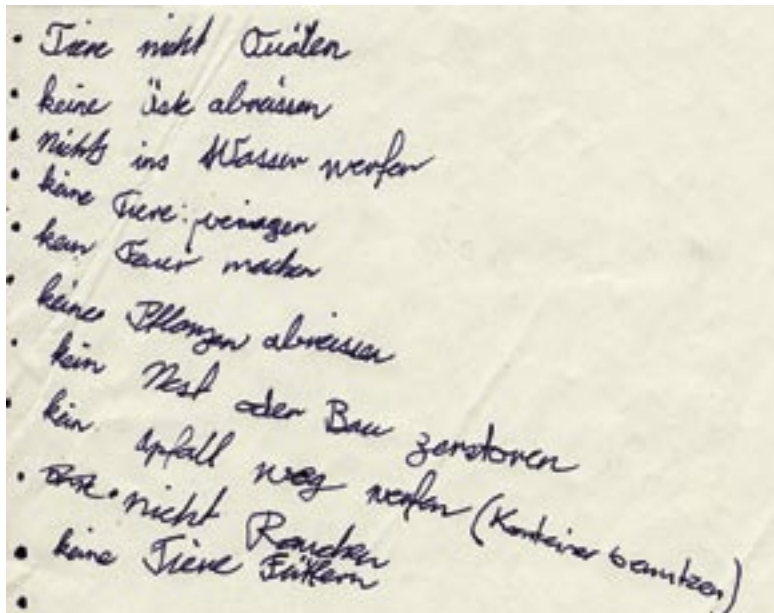 • Tiere nicht Quälen
• keine Äste abreissen
• nichts ins Wasser werfen
• keine Tiere
• kein Feuer machen
• keine Pflanzen abreissen
• kein Nest oder Bau zerstören
• kein Apfall weg werfen (Konteiner benutzen)
• nicht Rauchen
• keine Tiere Füttern
•